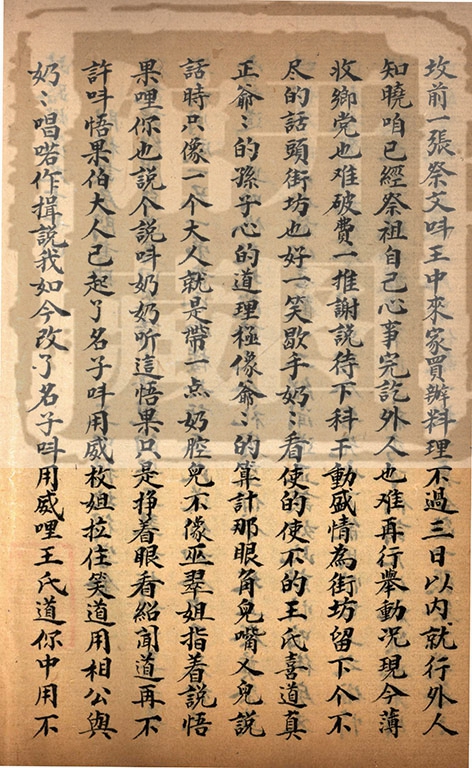 坟前一張祭文呌王中來家買辦料理不過三日以內就行外人
知曉咱已經祭祖自己心事完訖外人也难再行舉動况現今薄
收鄉党也难破費一推謝説待下科干動盛情為街坊留下个不
尽的話頭街坊也好一笑歇手奶〻看使的使不的王氏喜道真
正爺〻的孫子心的道理極像爺〻的算計那眼角兒嘴乂兒説
話時只像一个大人就是帶一点奶腔兒不像巫翠姐指着説悟
果哩你也説个説呌奶奶听這悟果只是挣着眼看紹聞道再不
許呌悟果伯大人已起了名子呌用威枚姐拉住笑道用相公與
奶〻唱喏作揖説我如今改了名子呌用威哩王氏道你中用不